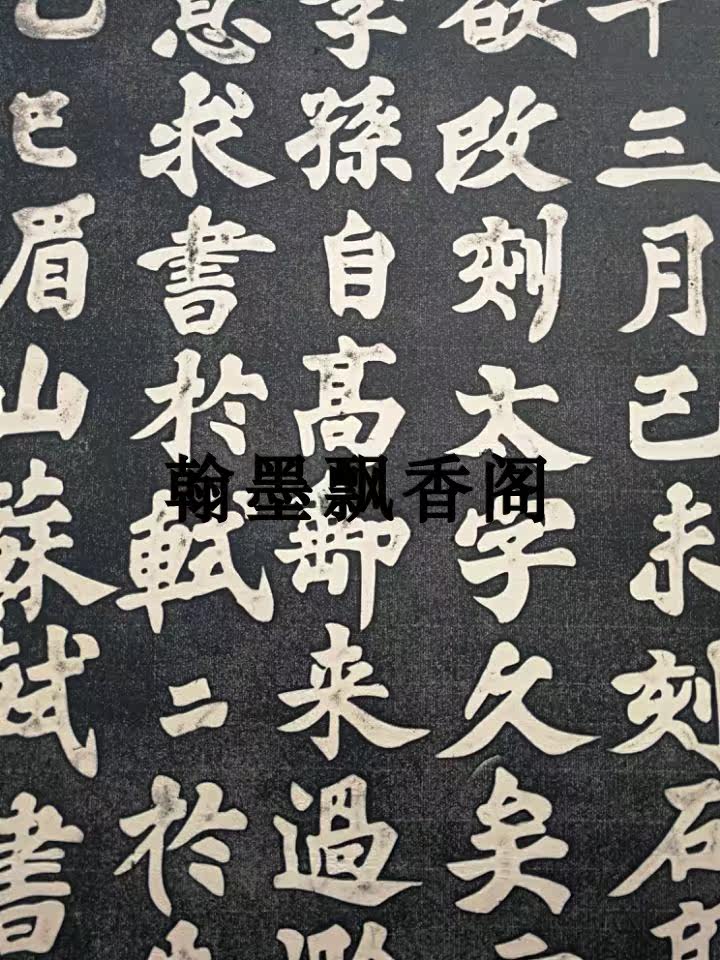 年三月己未刻石亭
欲改刻大字久矣
季孫自高郵来過滁
意求書於軾二於
乙巳眉山蘇軾書
翰墨飘香阁